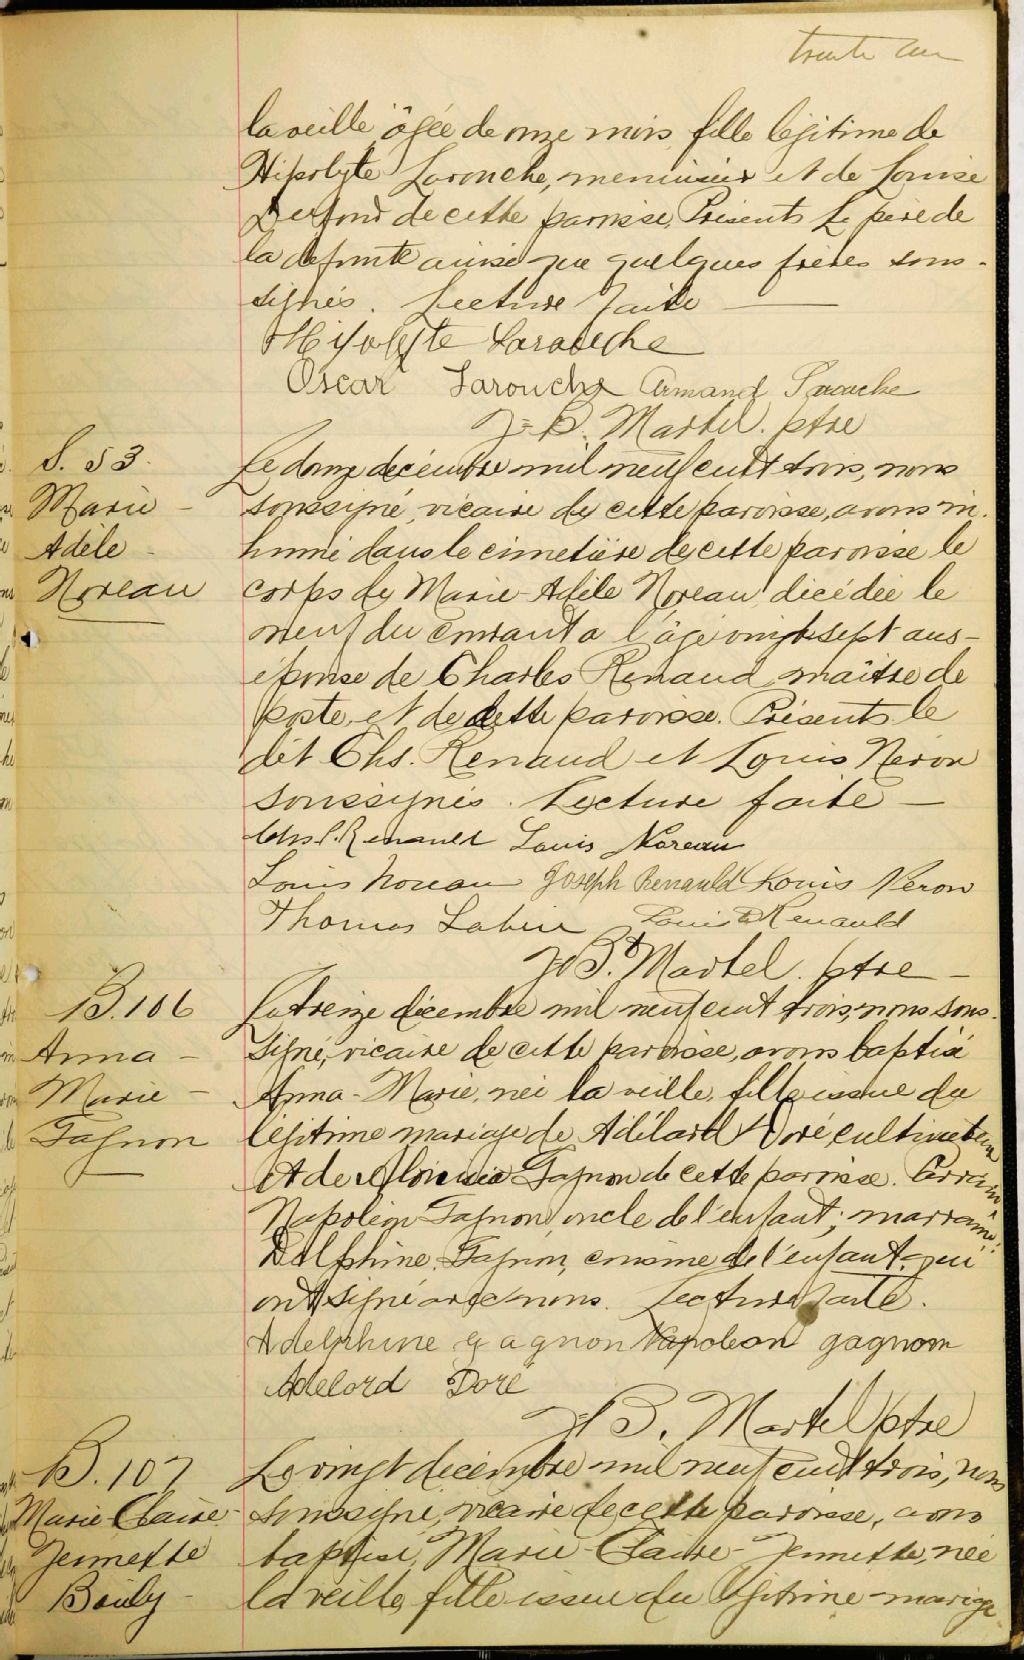 trente un
la veille âgée de onze mois, fille légitime de
Hipolyte Larouche, menuisier et de Louise
de cette paroisse. Présents le père de
la defunte ainsi que quelques frères sous-
signés. Lecture faite —
Hipolyte Larouche
Oscar Larouche Armand Larouche
J-B. Martel. ptre
S. 53.
Marie -
Adèle -
Noreau
Le douze décembre mil neuf cent trois, nous
soussigné, vicaire de cette paroisse, avons in-
humé dans le cimetière de cette paroisse le
corps de Marie-Adèle Noreau décédée le
neuf du courant a l'âge vingt sept ans -
épouse de Charles Renaud maître de
poste, et de cette paroisse. Présents le
dit Chs. Renaud et Louis Néron
soussignés. Lecture faite —
Chs P. Renauld Louis Noreau
Louis Noreau Joseph Renauld Louis Neron
Thomas Louis Renauld
J.B. Martel. ptre —
B. 106
Anna -
Marie -
Gagnon
Le treize décembre mil neuf cent trois, nous sous-
signé, vicaire de cette paroisse, avons baptisé
Anna-Marie, née la veille, fille issue du
légitime mariage de Adélard Doré cultivateur
et de Gagnon de cette paroisse. Parrain
Napoléon Gagnon, oncle de l'enfant; marraine:
Delphine Gagnon, cousine de l'enfant, qui
ont signé avec nous. Lecture faite.
Adelphine gagnon Napoleon gagnon
Adelord Doré
J-B. Martel ptre
B. 107
Marie-Claire-
Jeannette
Bouly -
Le vingt décembre mil neuf cent trois, nous
soussigné, vicaire de cette paroisse, avons
baptisé, Marie-Claire-Jeannette, née
la veille, fille issue du légitime mariage